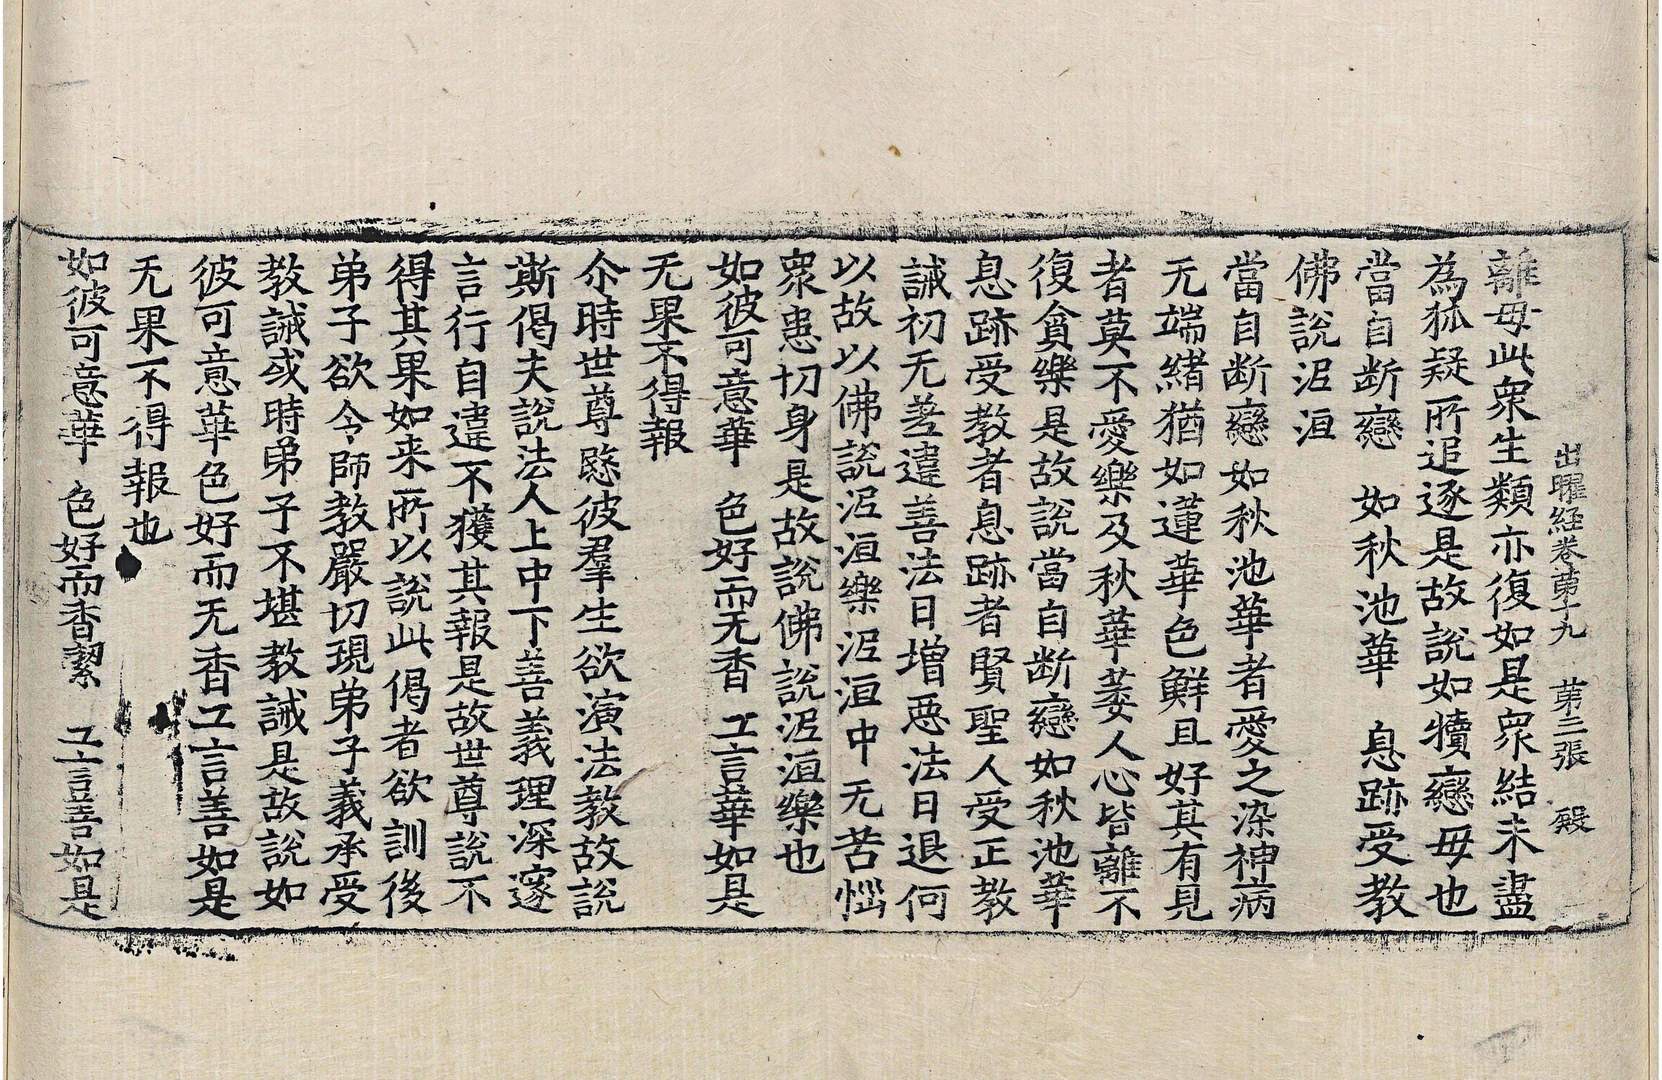 出曜経卷第十九 第三張 殿
離母此衆生類亦復如是衆結未盡
為狐疑所追逐是故說如犢戀母也
當自断戀 如秋池華 息跡受教
佛說泥洹
當自断戀如秋池華者愛之染神病
无端緒猶如蓮華色鮮且好其有見
者莫不愛樂及秋華萎人心皆離不
復貪樂是故說當自断戀如秋池華
息跡受教者息跡者賢聖人受正教
誡初无差違善法日增惡法日退何
以故以佛說泥洹樂泥洹中无苦惱
衆患切身是故說佛說泥洹樂也
如彼可意華 色好而无香 工言華如是
无果不得報
尒時世尊愍彼羣生欲演法教故說
斯偈夫說法人上中下善義理深邃
言行自違不獲其報是故世尊說不
得其果如来所以說此偈者欲訓後
弟子欲令師教嚴切現弟子義承受
教誡或時弟子不堪教誡是故說如
彼可意華色好而无香工言善如是
无果不得報也
如彼可意華 色好而香潔 工言善如是